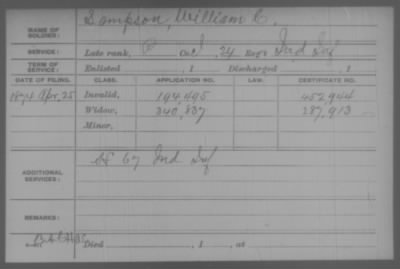 NAME OF SOLDIER: Sampson, William C.
SERVICE: Late rank, P Co. I, 24 Reg't Ind Inf
TERM OF SERVICE: Enlisted , 1 Discharged , 1
DATE OF FILING. CLASS. APPLICATION NO. LAW. CERTIFICATE NO.
1874 Apr, 25 Invalid, 194,495 452,944
Widow, 340,837 287,913
Minor,
ADDITIONAL SERVICES: 67 Ind Inf
REMARKS:
Died , 1 , at